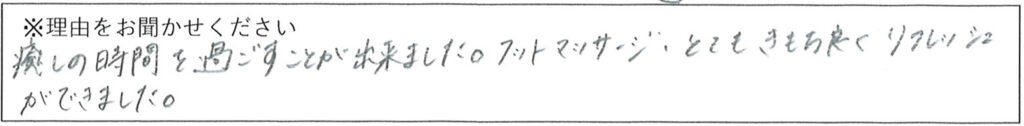 ※理由をお聞かせください
癒しの時間を過ごすことが出来ました。フットマッサージ、とてもきもち良くリフレッシュ
ができました。